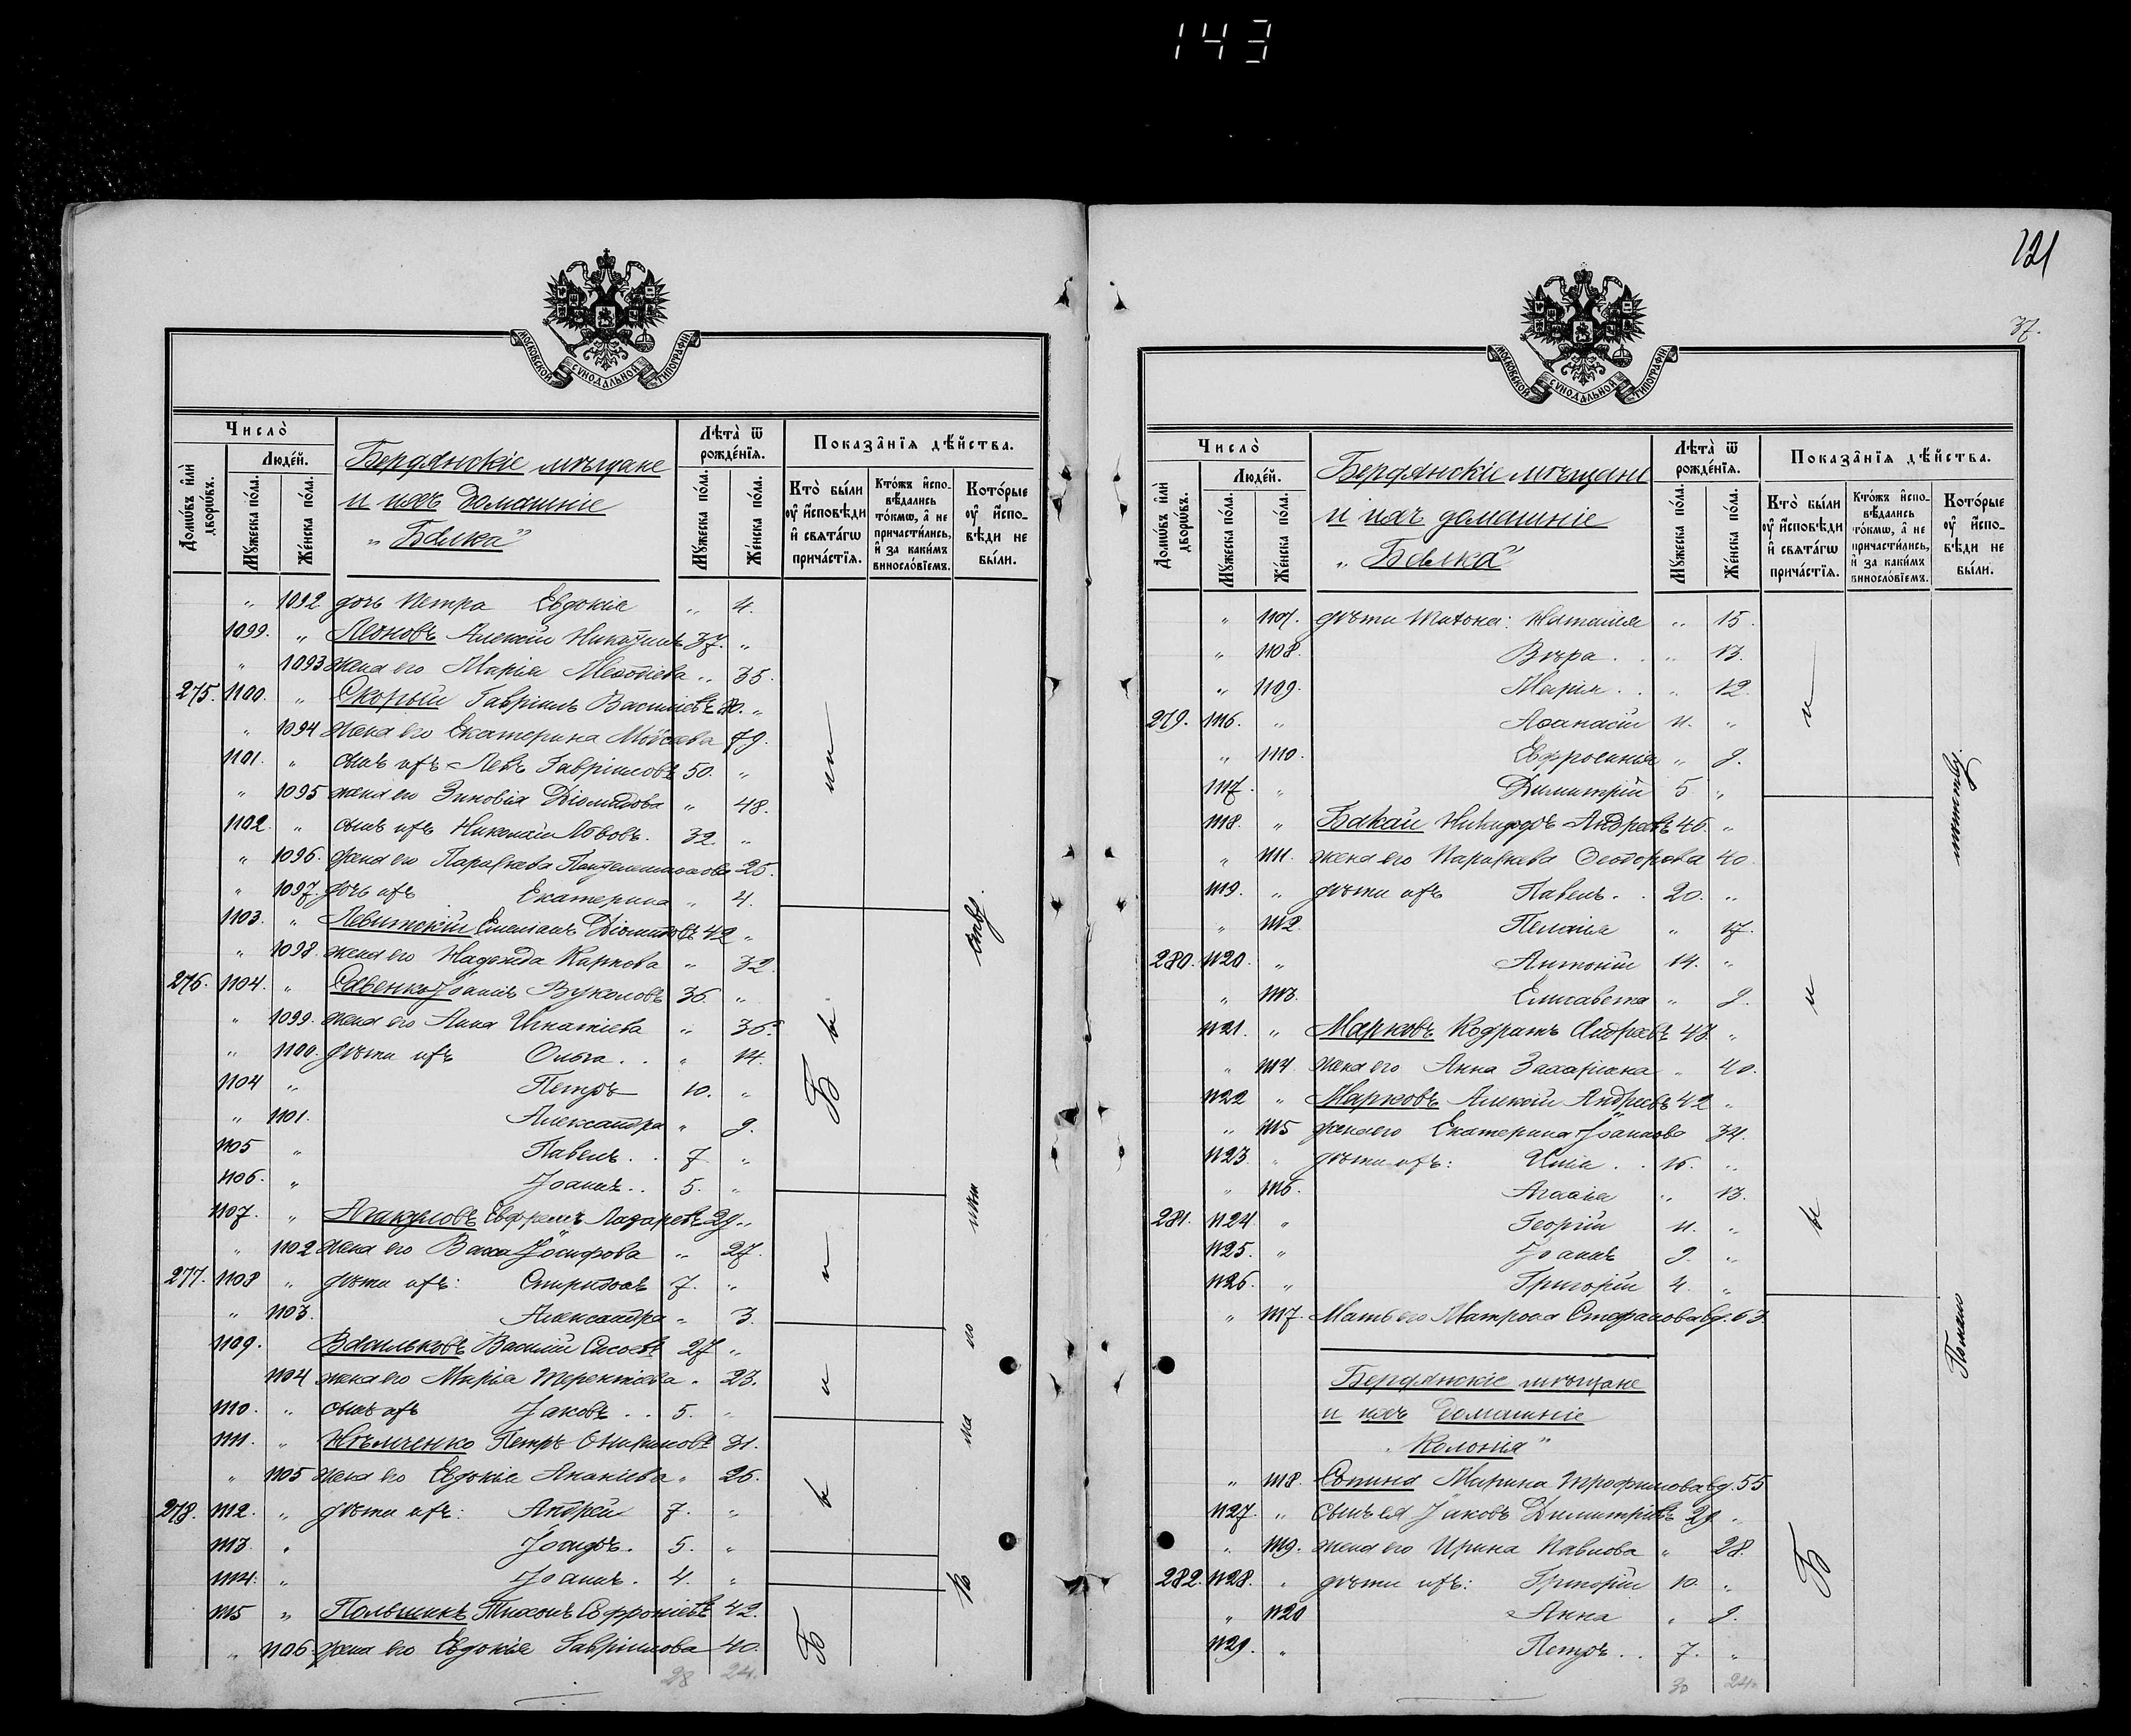 143
121
37.
МОСКОВСКОЙ СУНОДАЛЬНОЙ ТИПОГРАФІИ.
Число̀
Домѡ́въ и҆лѝ дворѡ́въ.
Людéй.
Мꙋ́жеска по́ла.
Же́нска по́ла.
Бердянскіе мѣщане
и ихъ домашніе
„Балка"
Лѣта̀ ѿ рожде́нїѧ.
Мꙋ́жеска по́ла.
Же́нска по́ла.
Показа̑нїѧ дѣ́йства.
Кто̀ бы́ли оу҆ и҆сповѣ́ди и҆ свѧта́гѡ прича́стїѧ.
Кто́жъ и҆спо-вѣ́дались то́кмѡ, а҆ не причасти́лись, и҆ за каки́мъ винослóвїемъ.
Кото́рые оу҆ и҆спо-вѣ́ди не бы́ли.
„ 1092 дочь Петра Евдокія „ 4.
1099. „ Леоновъ Алексій 37. „
„ 1093 жена его Марія „ 35.
275. 1100. „ Скорый Гавріилъ Васильевъ 80. „
„ 1094 жена его Екатерина Моисеева 79.
1101. „ сынъ ихъ Левъ Гавріиловъ 50. „
„ 1095 жена его Зиновія Діомидова „ 48.
1102. „ сынъ ихъ Николай Львовъ. 32. „
„ 1096. жена его Параскева Пантелеимонова 25.
„ 1097. дочь ихъ Екатерина „ 4.
1103. „ Левитскій Емеліанъ Діомидовъ 42 „
„ 1098. жена его Надежда Карпова „ 32.
276. 1104. „ Савенко Іоаннъ Вуколовъ 36. „
„ 1099. жена его Анна Игнатіева „ 36.
„ 1100. дѣти ихъ Ольга . . „ 14.
1104 „ Петръ 10. „
„ 1101. Александра „ 9.
1105 „ Павелъ . . 7 „
1106. „ Іоаннъ . . 5. „
1107. „ Евфремъ Лазаревъ 29. „
„ 1102 жена его Васса Іосифова „ 27.
277. 1108 „ дѣти ихъ: Спиридонъ 7. „
„ 1103. Александра „ 3.
1109. Васильковъ Василій Сысоевъ 27 „
1104 жена его Марія Терентіева „ 23.
1110. „ сынъ ихъ Іаковъ . . 5. „
1111. „ Нѣмченко Петръ 31.
„ 1105 жена его Евдокія Ананіева „ 26.
278. 1112. „ дѣти ихъ: Андрей 7. „
1113. „ 5. „
1114. „ Іоаннъ . 4. „
1115 „ Польшинъ Тихонъ Софроніевъ 42.
„ 1106. жена его Евдокія Гавріилова 40.
28 24.
МОСКОВСКОЙ СУНОДАЛЬНОЙ ТИПОГРАФІИ.
Число̀
Домѡ́въ и҆лѝ дворѡ́въ.
Людéй.
Мꙋ́жеска по́ла.
Же́нска по́ла.
Бердянскіе мѣщане
и ихъ домашніе
„Балка"
Лѣта̀ ѿ рожде́нїѧ.
Мꙋ́жеска по́ла.
Же́нска по́ла.
Показа̑нїѧ дѣ́йства.
Кто̀ бы́ли оу҆ и҆сповѣ́ди и҆ свѧта́гѡ прича́стїѧ.
Кто́жъ и҆спо-вѣ́дались то́кмѡ, а҆ не причасти́лись, и҆ за каки́мъ винослóвїемъ.
Кото́рые оу҆ и҆спо-вѣ́ди не бы́ли.
„ 1107. дѣти Тихона: Наталія „ 15.
„ 1108. Вѣра . . „ 13.
„ 1109. Марія . . „ 12.
279. 1116. „ Афанасій 11. „
„ 1110. Евфросинія „ 9.
1117. „ Димитрій 5 „
1118. „ Бакай Никифоръ Андреевъ 46. „
„ 1111. жена его Параскева Ѳеодорова 40.
1119. „ дѣти ихъ Павелъ . . 20. „
„ 1112 Пелагія „ 17.
280. 1120. „ Антоній 14. „
„ 1113. Елисавета „ 9.
1121. „ Марковъ Кодратъ Андреевъ 43. „
„ 1114 жена его Анна Захаріина „ 40.
1122 „ Марковъ Алексій Андреевъ 42 „
„ 1115 жена его Екатерина Іоаннова 34.
1123. „ дѣти ихъ: Илія . . 16. „
„ 1116. Агафія „ 13.
281. 1124 „ Георгій 11. „
1125. „ Іоаннъ 9. „
1126. „ Григорій 4. „
„ 1117. Мать его Матрона Стефанова вд. 63.
Бердянскіе мѣщане
и ихъ домашніе
„Колонія"
„ 1118. Марина Трофимова вд. 55
1127. „ сынъ ея Іаковъ Димитріевъ 29. „
„ 1119. жена его Ирина Павлова „ 28.
282. 1128. „ дѣти ихъ: Григорій 10. „
„ 1120 Анна „ 9.
1129. „ Петръ . . 7. „
30 24.